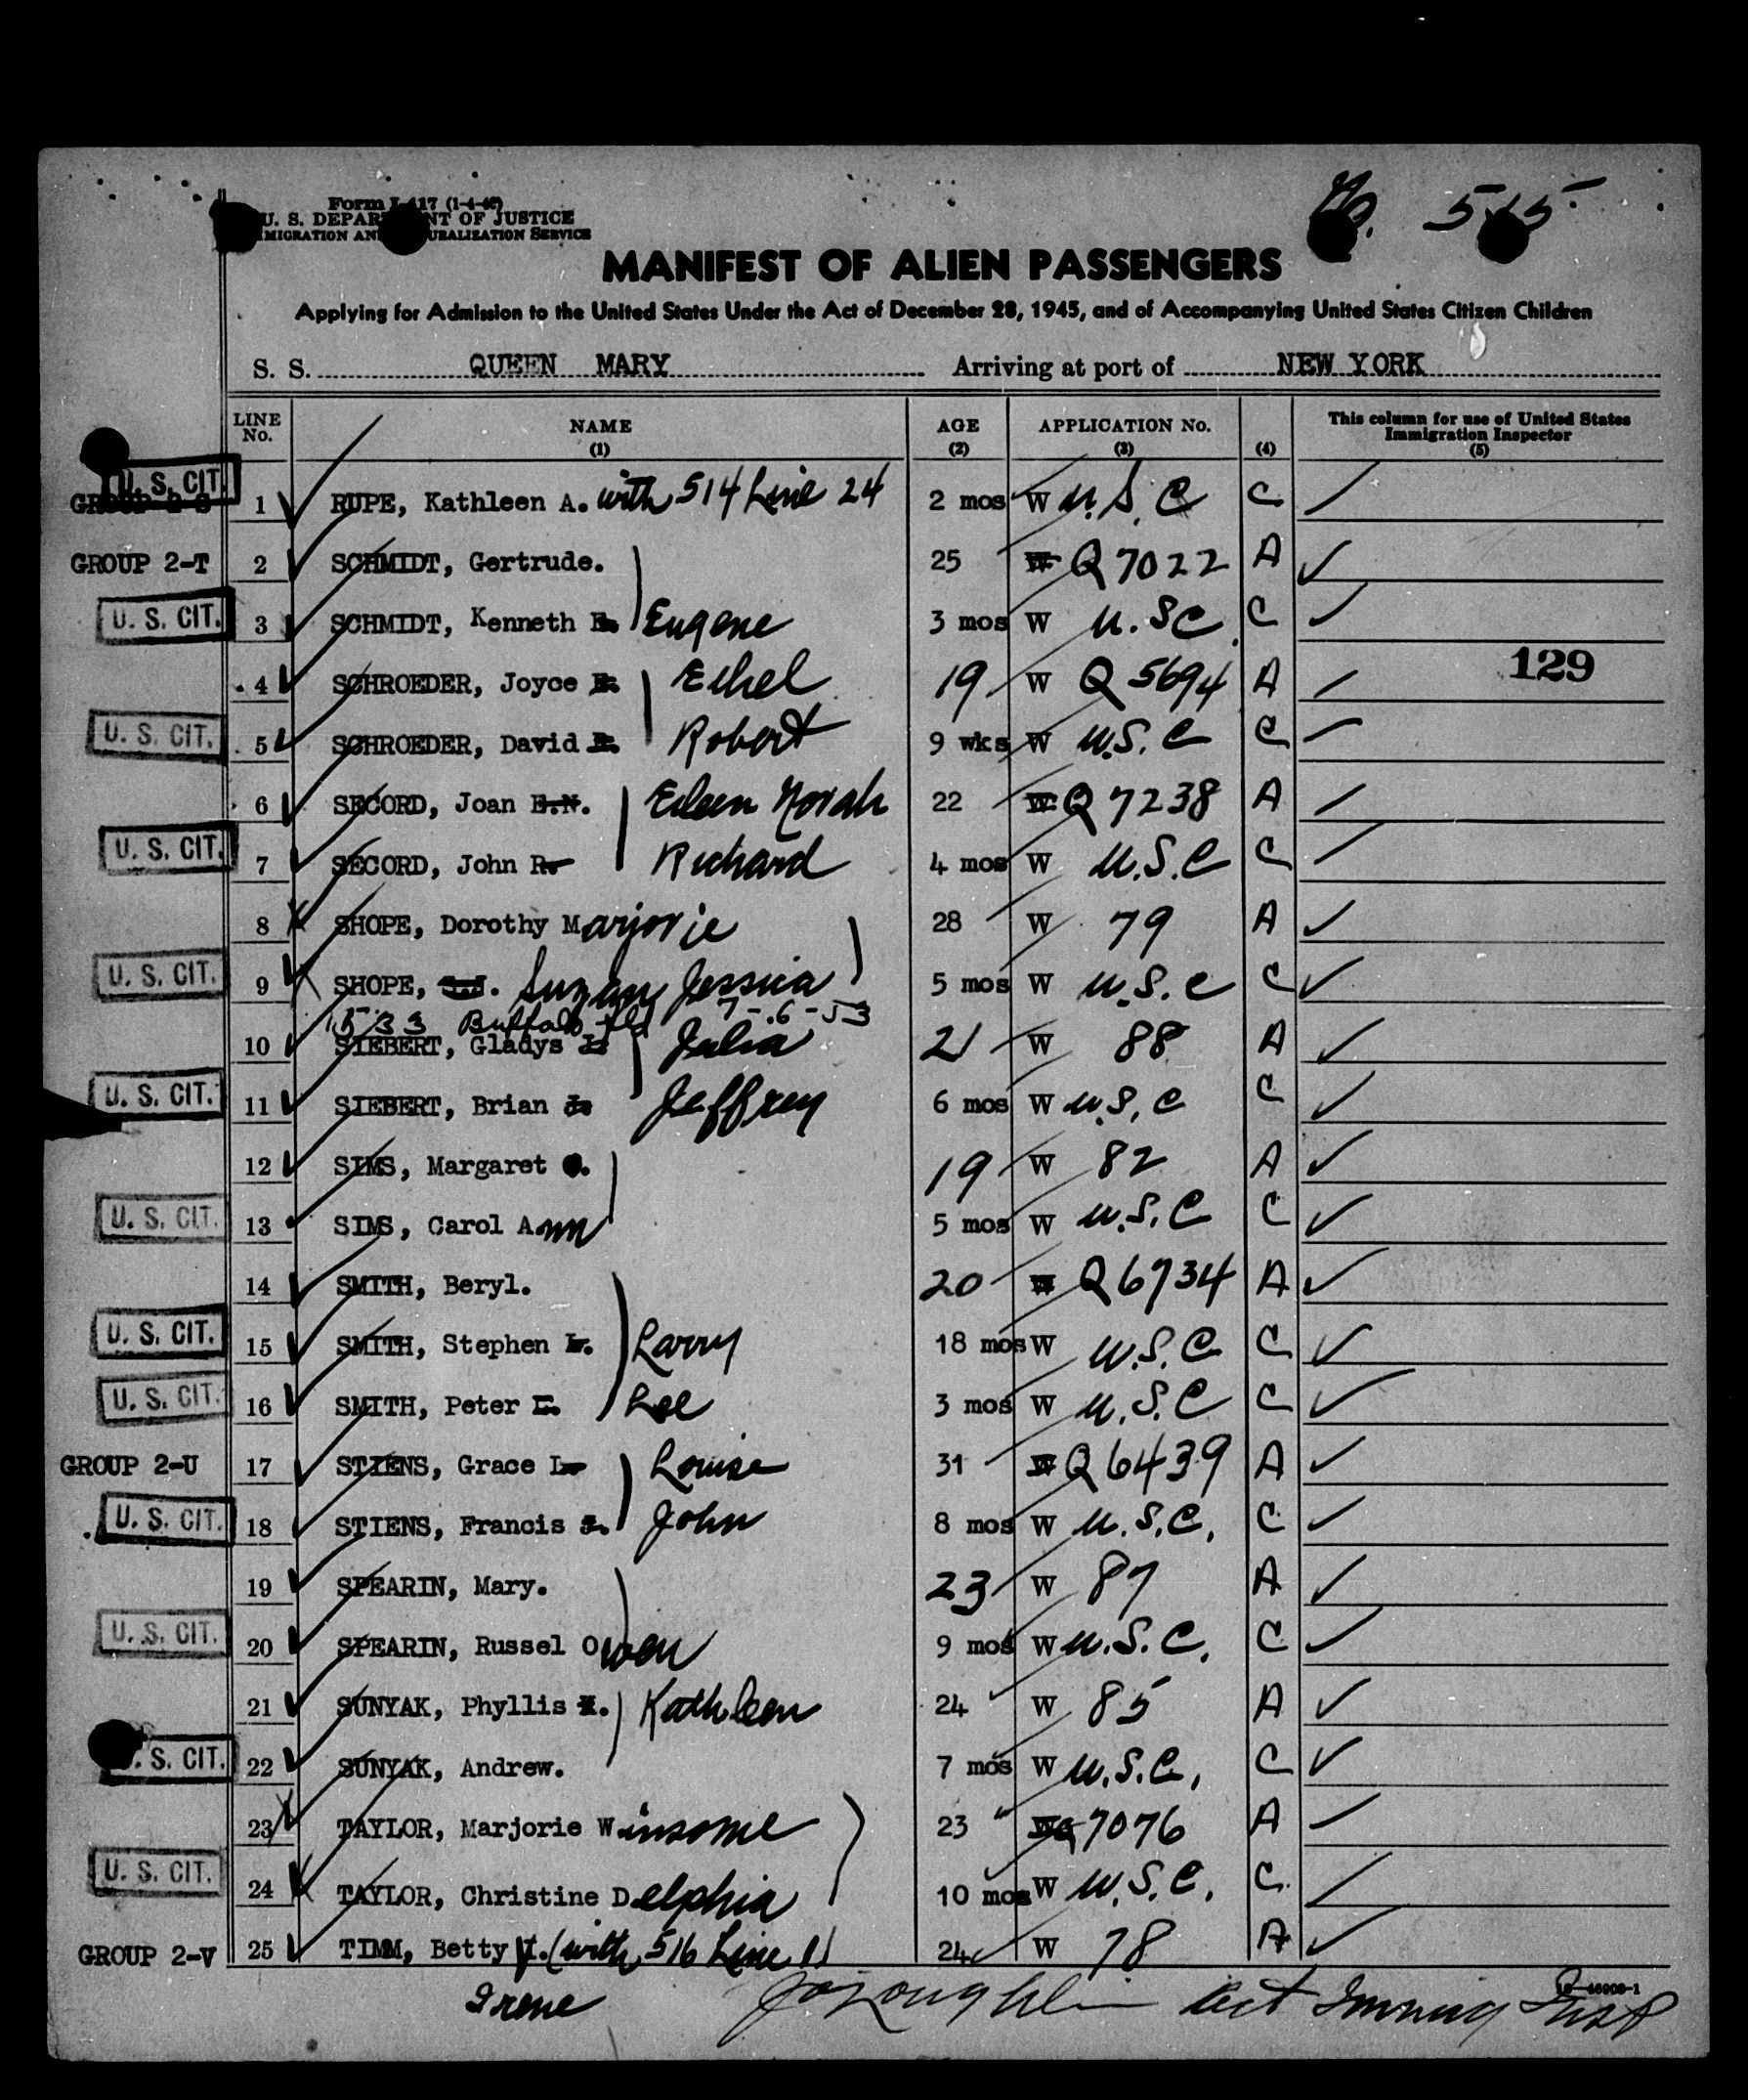 Form I-417 (1-4-46)
U. S. DEPARTMENT OF JUSTICE
IMMIGRATION AND NATURALIZATION SERVICE
No. 515
MANIFEST OF ALIEN PASSENGERS
Applying for Admission to the United States Under the Act of December 28, 1945, and of Accompanying United States Citizen Children
S. S. QUEEN MARY Arriving at port of NEW YORK
LINE No. NAME (1) AGE (2) APPLICATION No. (3) (4) This column for use of United States Immigration Inspector (5)
U. S. CIT.
GROUP 2-S 1 RUPE, Kathleen A. with 514 Line 24 2 mos W U.S.C C
GROUP 2-T 2 SCHMIDT, Gertrude. 25 W Q 7022 A
U. S. CIT. 3 SCHMIDT, Kenneth E. Eugene 3 mos W U.SC. C
4 SCHROEDER, Joyce E. Ethel 19 W Q 5694 A 129
U. S. CIT. 5 SCHROEDER, David R. Robert 9 wks W U.S.C C
6 SECORD, Joan E.N. Eileen Norah 22 W Q 7238 A
U. S. CIT. 7 SECORD, John R. Richard 4 mos W U.S.C C
8 SHOPE, Dorothy Marjorie 28 W 79 A
U. S. CIT. 9 SHOPE, S.J. Suzany Jessica 5 mos W U.S.C C
1533 Buffalo fld 7-6-53
10 SIEBERT, Gladys J. Julia 21 W 88 A
U. S. CIT. 11 SIEBERT, Brian J. Jeffrey 6 mos W U.S.C C
12 SIMS, Margaret 19 W 82 A
U. S. CIT. 13 SIMS, Carol Ann 5 mos W U.S.C C
14 SMITH, Beryl. 20 W Q 6734 A
U. S. CIT. 15 SMITH, Stephen L. Larry 18 mos W U.S.C C
U. S. CIT. 16 SMITH, Peter L. Lee 3 mos W U.S.C C
GROUP 2-U 17 STIENS, Grace L. Louise 31 W Q 6439 A
U. S. CIT. 18 STIENS, Francis J. John 8 mos W U.S.C. C
19 SPEARIN, Mary. 23 W 87 A
U. S. CIT. 20 SPEARIN, Russel Owen 9 mos W U.S.C. C
21 SUNYAK, Phyllis K. Kathleen 24 W 85 A
U. S. CIT. 22 SUNYAK, Andrew. 7 mos W U.S.C. C
23 TAYLOR, Marjorie Winsome 23 W Q 7076 A
U. S. CIT. 24 TAYLOR, Christine Delphia 10 mos W U.S.C. C
GROUP 2-V 25 TIMM, Betty I. (with 516 Line 1) 24 W 78 A
Irene
Act Immig Insp